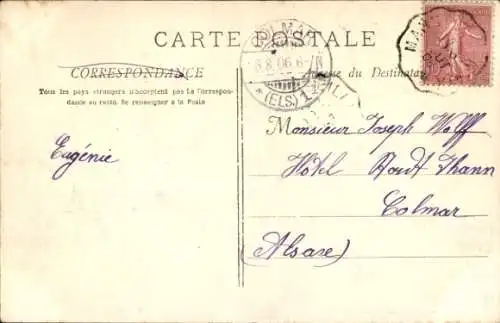 CARTE POSTALE
CORRESPONDANCE
Tous les pays étrangers n'acceptent pas la Correspon-
dance au recto. Se renseigner à la Poste
du Destinataire
8.06.6-
(ELS.)
Eugénie
Monsieur Joseph Wolff
Hôtel Thann
Colmar
(Alsace)